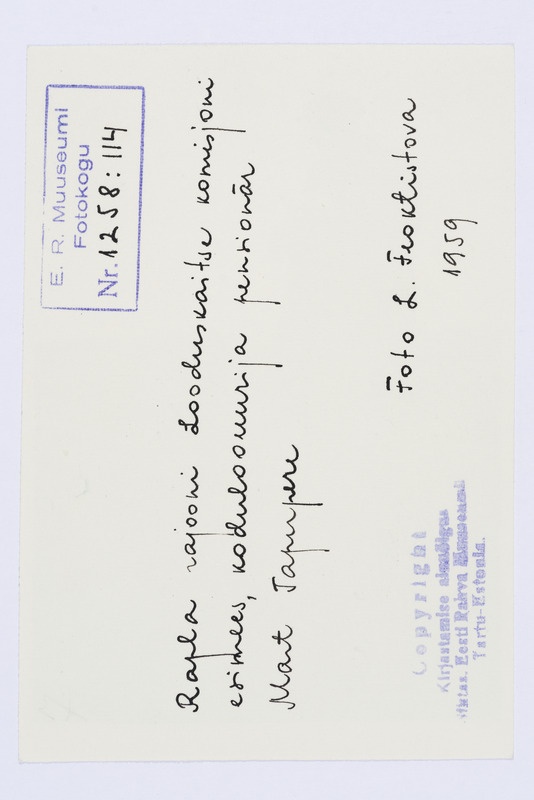 E. R. Muuseumi
Fotokogu
Nr. 1258:114
Rapla rajooni Looduskaitse komisjoni
esimees, koduloouurija pensionär
Mart Tapupere
Foto L. Feoktistova
1959
Copyright
Kirjastamise ainuõigus
Eesti Rahva Muuseumi
Tartu-Estonia.